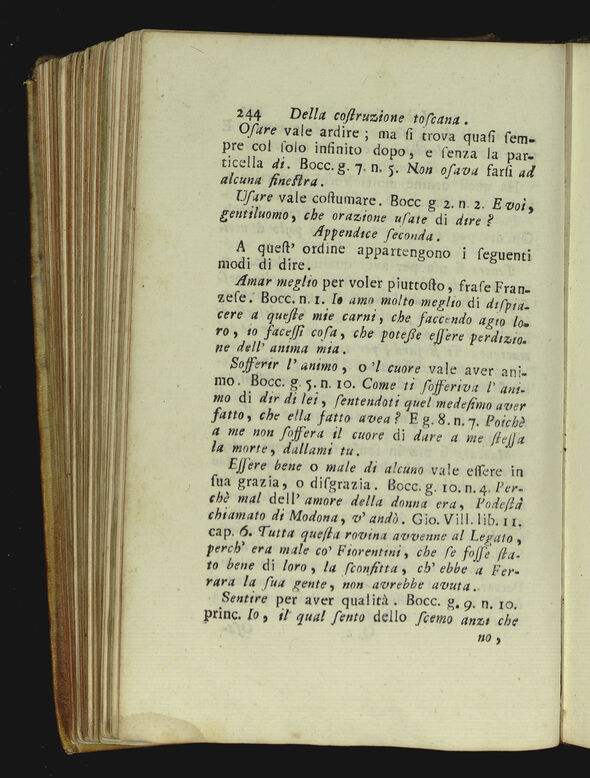 244 Della coſtruzione toſcana.
Oſare vale ardire; ma ſi trova quaſi ſem-
pre col ſolo infinito dopo, e ſenza la par-
ticella di. Bocc. g. 7. n. 5. Non oſava farſi ad
alcuna fineſtra.
Uſare vale coſtumare. Bocc g 2. n. 2. E voi,
gentiluomo, che orazione uſate di dire?
Appendice ſeconda.
A queſt' ordine appartengono i ſeguenti
modi di dire.
Amar meglio per voler piuttoſto, fraſe Fran-
zeſe. Bocc. n. 1. Io amo molto meglio di diſpia-
cere a queſte mie carni, che faccendo agio lo-
ro, io faceſſi coſa, che poteſſe eſſere perdizio-
ne dell' anima mia.
Sofferir l' animo, o 'l cuore vale aver ani-
mo. Bocc. g. 5. n. 10. Come ti ſofferiva l' ani-
mo di dir di lei, ſentendoti quel medeſimo aver
fatto, che ella fatto avea? E g. 8. n. 7. Poichè
a me non ſoffera il cuore di dare a me ſteſſa
la morte, dallami tu.
Eſſere bene o male di alcuno vale eſſere in
ſua grazia, o diſgrazia. Bocc. g. 10. n. 4. Per-
chè mal dell' amore della donna era, Podeſtà
chiamato di Modona, v' andò. Gio. Vill. lib. 11.
cap. 6. Tutta queſta rovina avvenne al Legato,
perch' era male co' Fiorentini, che ſe foſſe ſta-
to bene di loro, la ſconfitta, ch' ebbe a Fer-
rara la ſua gente, non avrebbe avuta.
Sentire per aver qualità. Bocc. g. 9. n. 10.
princ. Io, il qual ſento dello ſcemo anzi che
no,